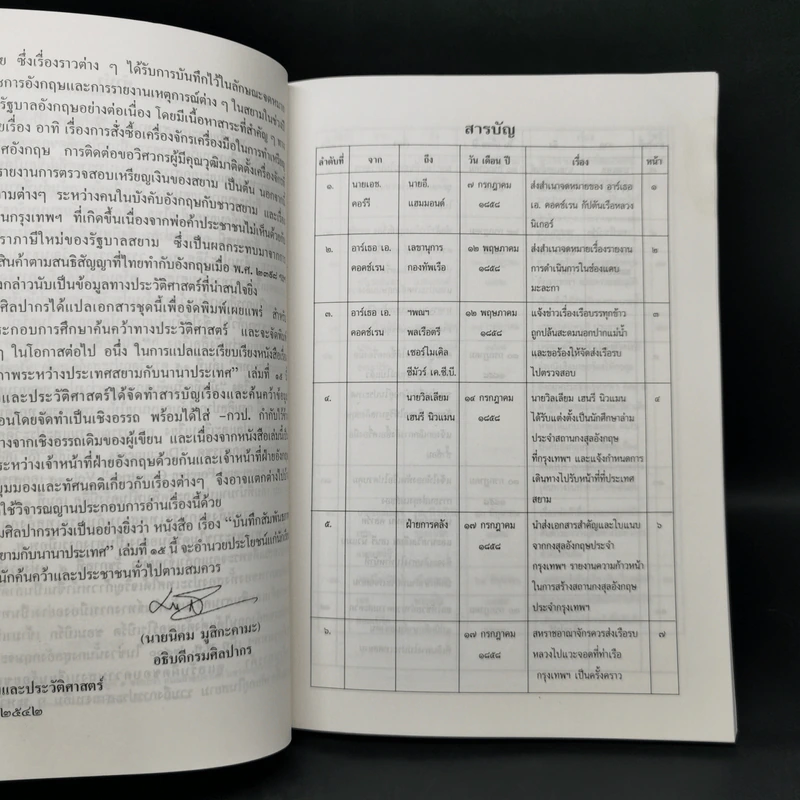 ย ซึ่งเรื่องราวต่าง ๆ ได้รับการบันทึกไว้ในลักษณะจดหมาย
ชการอังกฤษและการรายงานเหตุการณ์ต่าง ๆ ในสยามในช่วง
รัฐบาลอังกฤษอย่างต่อเนื่อง โดยมีเนื้อหาสาระที่สำคัญ ๆ
ยเรื่อง อาทิ เรื่องการสั่งซื้อเครื่องจักรเครื่องมือในการทำเหรียญ
ศอังกฤษ การติดต่อขอวิศวกรผู้มีคุณวุฒิมาติดตั้งเครื่องจักร
รายงานการตรวจสอบเหรียญเงินของสยาม เป็นต้น นอกจากนี้
ามต่างๆ ระหว่างคนในบังคับอังกฤษกับชาวสยาม และเรื่อง
นกรุงเทพฯ ที่เกิดขึ้นเนื่องจากพ่อค้าประชาชนไม่เห็นด้วยกับ
ราภาษีใหม่ของรัฐบาลสยาม ซึ่งเป็นผลกระทบมาจากการ
สินค้าตามสนธิสัญญาที่ไทยทำกับอังกฤษเมื่อ พ.ศ. ๒๓๙๘
งกล่าวนับเป็นข้อมูลทางประวัติศาสตร์ที่น่าสนใจยิ่ง
ศิลปากรได้แปลเอกสารชุดนี้เพื่อจัดพิมพ์เผยแพร่ สำหรับ
ระกอบการศึกษาค้นคว้าทางประวัติศาสตร์ และจะจัดพิมพ์
ๆ ในโอกาสต่อไป อนึ่ง ในการแปลและเรียบเรียงหนังสือเรื่อง
ภาพระหว่างประเทศสยามกับนานาประเทศ” เล่มที่ ๑๕
และประวัติศาสตร์ได้จัดทำสารบัญเรื่องและค้นคว้าข้อมูล
อนโดยจัดทำเป็นเชิงอรรถ พร้อมได้ใส่ -กวป. กำกับไว้
างจากเชิงอรรถเดิมของผู้เขียน และเนื่องจากหนังสือเล่มนี้
ระหว่างเจ้าหน้าที่ฝ่ายอังกฤษด้วยกันและเจ้าหน้าที่ฝ่ายอังกฤษ
มุมมองและทัศนคติเกี่ยวกับเรื่องต่างๆ จึงอาจแตกต่างไป
ใช้วิจารณญานประกอบการอ่านเรื่องนี้ด้วย
มศิลปากรหวังเป็นอย่างยิ่งว่า หนังสือ เรื่อง “บันทึกสัมพันธภาพ
ยามกับนานาประเทศ” เล่มที่ ๑๕ นี้ จะอำนวยประโยชน์แก่นัก
นักค้นคว้าและประชาชนทั่วไปตามสมควร
(นายนิคม มูสิกะคามะ)
อธิบดีกรมศิลปากร
และประวัติศาสตร์
๒๕๔๒
สารบัญ
ลำดับที่ จาก ถึง วัน เดือน ปี เรื่อง หน้า
๑. นายเอช. นายอี. ๗ กรกฎาคม ส่งสำเนาจดหมายของ อาร์เธอ ๑
คอร์รี แฮมมอนด์ ๑๘๕๘ เอ. คอคช์เรน กัปตันเรือหลวง
นิเกอร์
๒. อาร์เธอ เอ. เลขานุการ ๑๒ พฤษภาคม ส่งสำเนาจดหมายเรื่องรายงาน ๒
คอคช์เรน กองทัพเรือ ๑๘๕๘ การดำเนินการในช่องแคบ
มะละกา
๓. อาร์เธอ เอ. ฯพณฯ ๑๒ พฤษภาคม แจ้งข่าวเรื่องเรือบรรทุกข้าว ๓
คอคช์เรน พลเรือตรี ๑๘๕๘ ถูกปล้นสะดมนอกปากแม่น้ำ
เซอร์ไมเคิล และขอร้องให้จัดส่งเรือรบ
ซีมัวร์ เค.ซี.บี. ไปตรวจสอบ
๔. นายวิลเลียม ๑๔ กรกฎาคม นายวิลเลียม เฮนรี นิวแมน ๔
เฮนรี นิวแมน ๑๘๕๘ ได้รับแต่งตั้งเป็นนักศึกษาล่าม
ประจำสถานกงสุลอังกฤษ
ที่กรุงเทพฯ และแจ้งกำหนดการ
เดินทางไปรับหน้าที่ที่ประเทศ
สยาม
๕. ฝ่ายการคลัง ๑๗ กรกฎาคม นำส่งเอกสารสำคัญและใบแนบ ๖
๑๘๕๘ จากกงสุลอังกฤษประจำ
กรุงเทพฯ รายงานความก้าวหน้า
ในการสร้างสถานกงสุลอังกฤษ
ประจำกรุงเทพฯ
๖. ๑๗ กรกฎาคม สหราชอาณาจักรควรส่งเรือรบ ๗
๑๘๕๘ หลวงไปแวะจอดที่ท่าเรือ
กรุงเทพฯ เป็นครั้งคราว